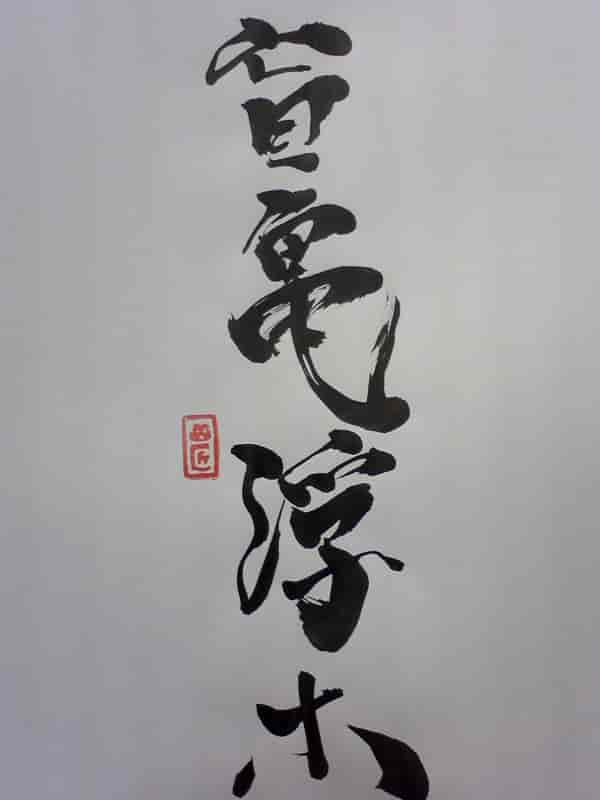 盲亀浮木